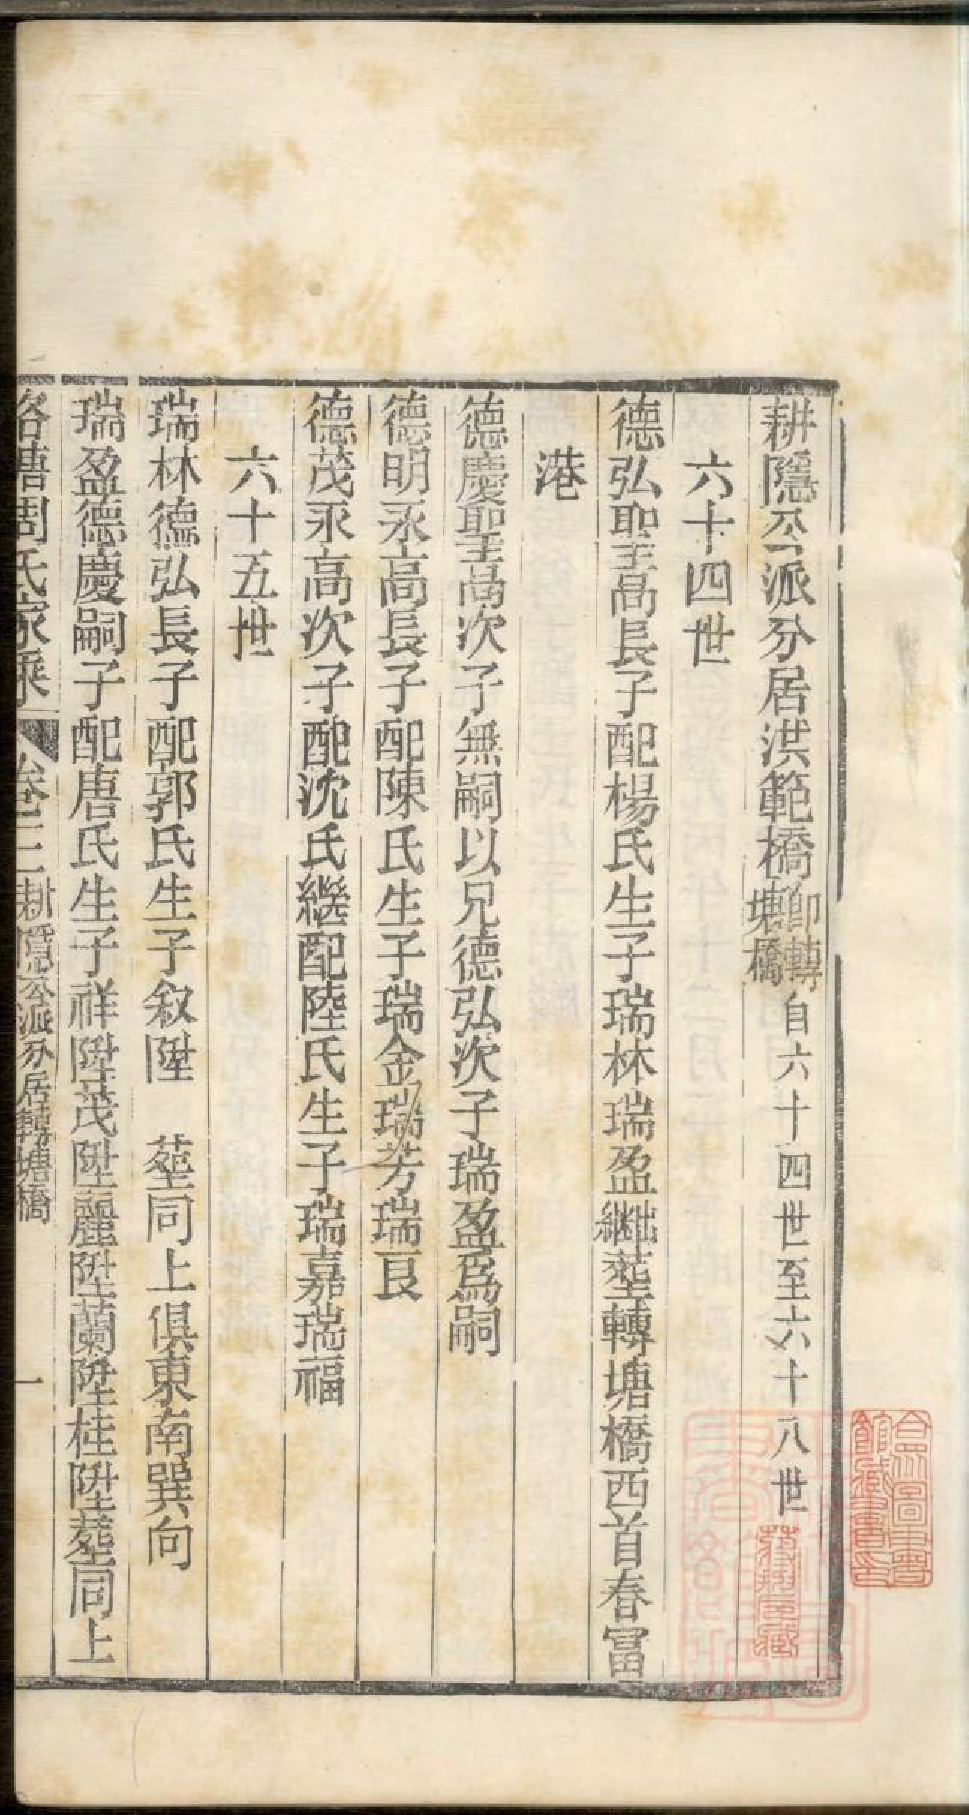 耕隱公派分居洪範橋即轉塘橋自六十四世至六十八世
六十四世
德弘聖昺長子配楊氏生子瑞林瑞盈出繼塟轉塘橋西首春富
港
德慶聖昺次子無嗣以兄德弘次子瑞盈爲嗣
德明永高長子配陳氏生子瑞金瑞芳瑞良
德茂永高次子配沈氏繼配陸氏生子瑞嘉瑞福
六十五世
瑞林德弘長子配郭氏生子叙陞 塟同上俱東南巽向
瑞盈德慶嗣子配唐氏生子祥陞茂陞麗陞蘭陞桂陞塟同上
塘周氏家乘 卷三 耕隱公派分居轉塘橋 一